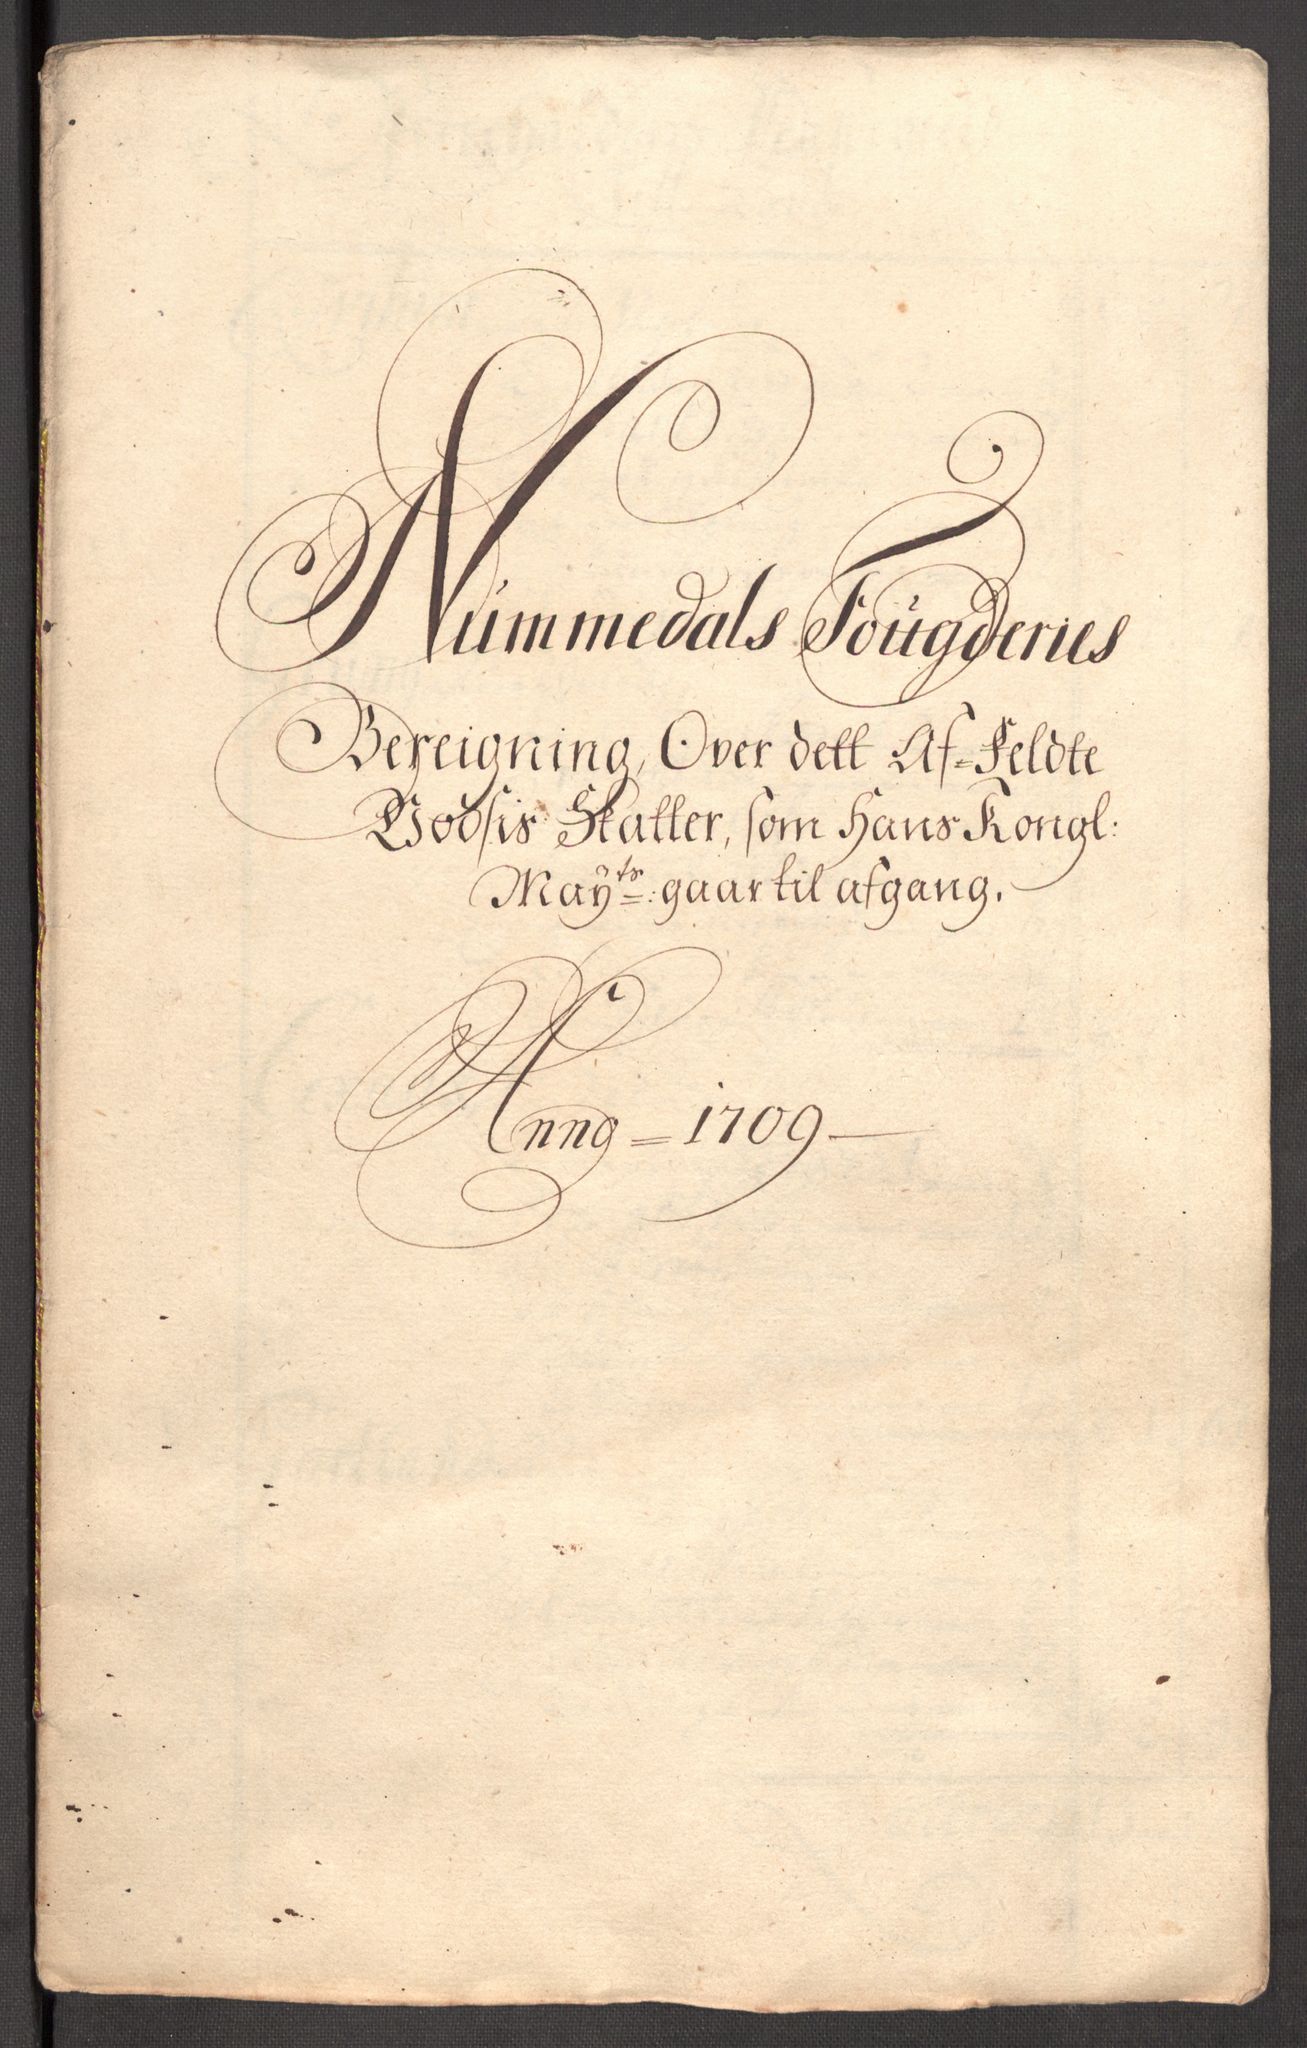 Nummedals Fougderies
Bereigning, Over dett Af-Feldte
Godsis Skatter, som Hans Kongl:
Mayts: gaar til afgang.
Anno = 1709